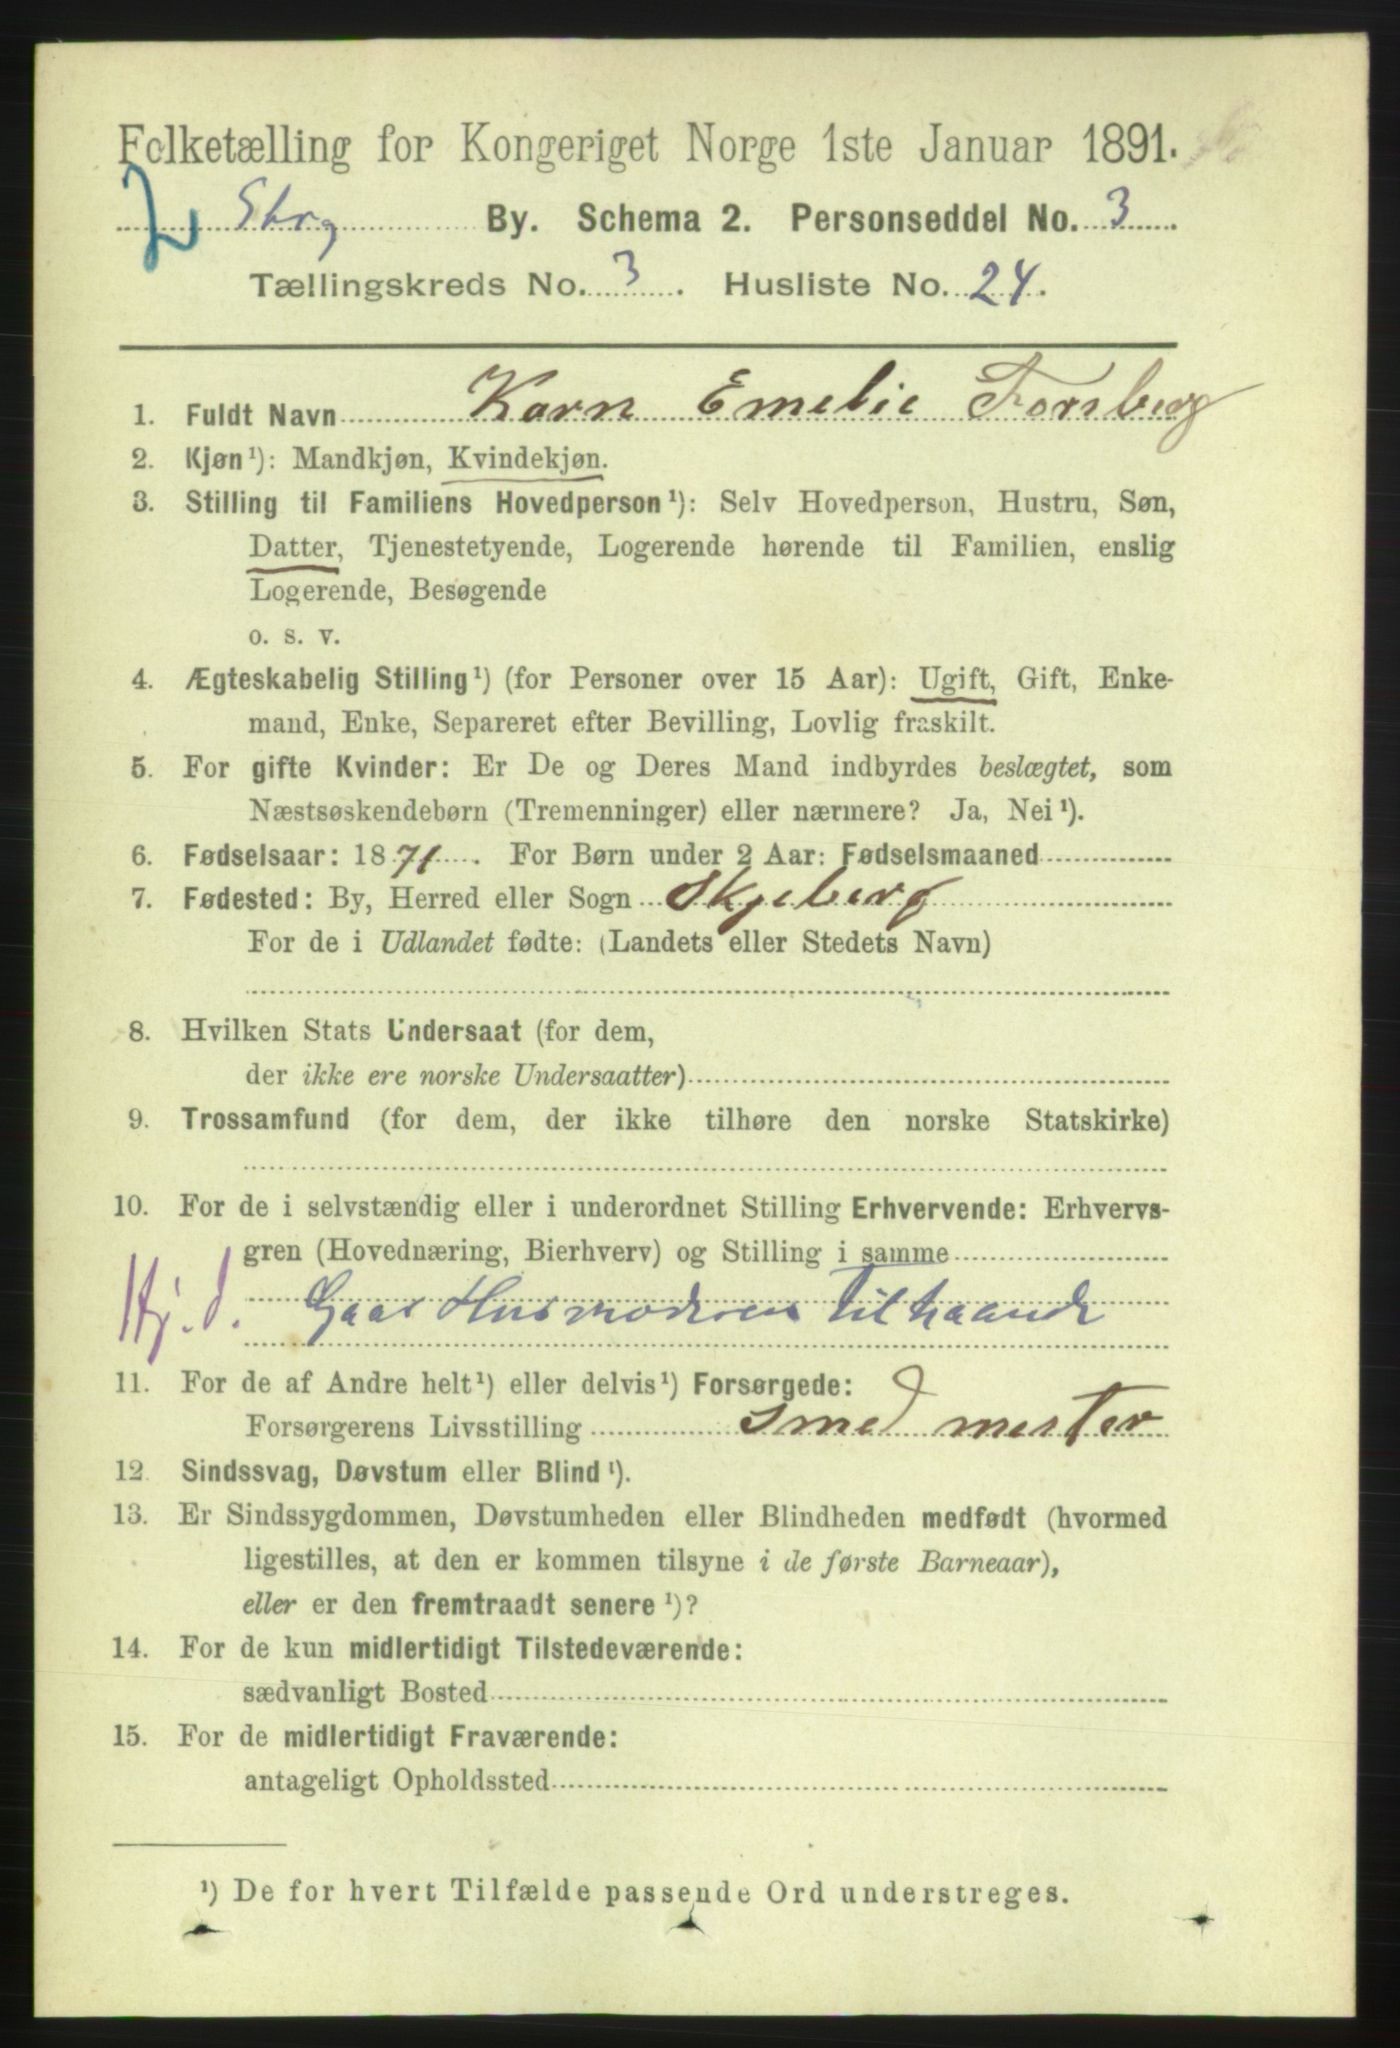 Folketælling for Kongeriget Norge 1ste Januar 1891.
Sbrg By. Schema 2. Personseddel No. 3
Tællingskreds No. 3. Husliste No. 24.
1. Fuldt Navn Karn Emelie Forsberg
2. Kjøn¹): Mandkjøn, Kvindekjøn.
3. Stilling til Familiens Hovedperson¹): Selv Hovedperson, Hustru, Søn,
Datter, Tjenestetyende, Logerende hørende til Familien, enslig
Logerende, Besøgende
o. s. v.
4. Ægteskabelig Stilling¹) (for Personer over 15 Aar): Ugift, Gift, Enke-
mand, Enke, Separeret efter Bevilling, Lovlig fraskilt.
5. For gifte Kvinder: Er De og Deres Mand indbyrdes beslægtet, som
Næstsøskendebørn (Tremenninger) eller nærmere? Ja, Nei¹).
6. Fødselsaar: 1871. For Børn under 2 Aar: Fødselsmaaned
7. Fødested: By, Herred eller Sogn Skjeberg
For de i Udlandet fødte: (Landets eller Stedets Navn)
8. Hvilken Stats Undersaat (for dem,
der ikke ere norske Undersaatter)
9. Trossamfund (for dem, der ikke tilhøre den norske Statskirke)
10. For de i selvstændig eller i underordnet Stilling Erhvervende: Erhvervs-
gren (Hovednæring, Bierhverv) og Stilling i samme
Hj. d. Gaar Husmoderen til haande
11. For de af Andre helt¹) eller delvis¹) Forsørgede:
Forsørgerens Livsstilling Smed mester
12. Sindssvag, Døvstum eller Blind¹).
13. Er Sindssygdommen, Døvstumheden eller Blindheden medfødt (hvormed
ligestilles, at den er kommen tilsyne i de første Barneaar),
eller er den fremtraadt senere¹)?
14. For de kun midlertidigt Tilstedeværende:
sædvanligt Bosted
15. For de midlertidigt Fraværende:
antageligt Opholdssted
¹) De for hvert Tilfælde passende Ord understreges.